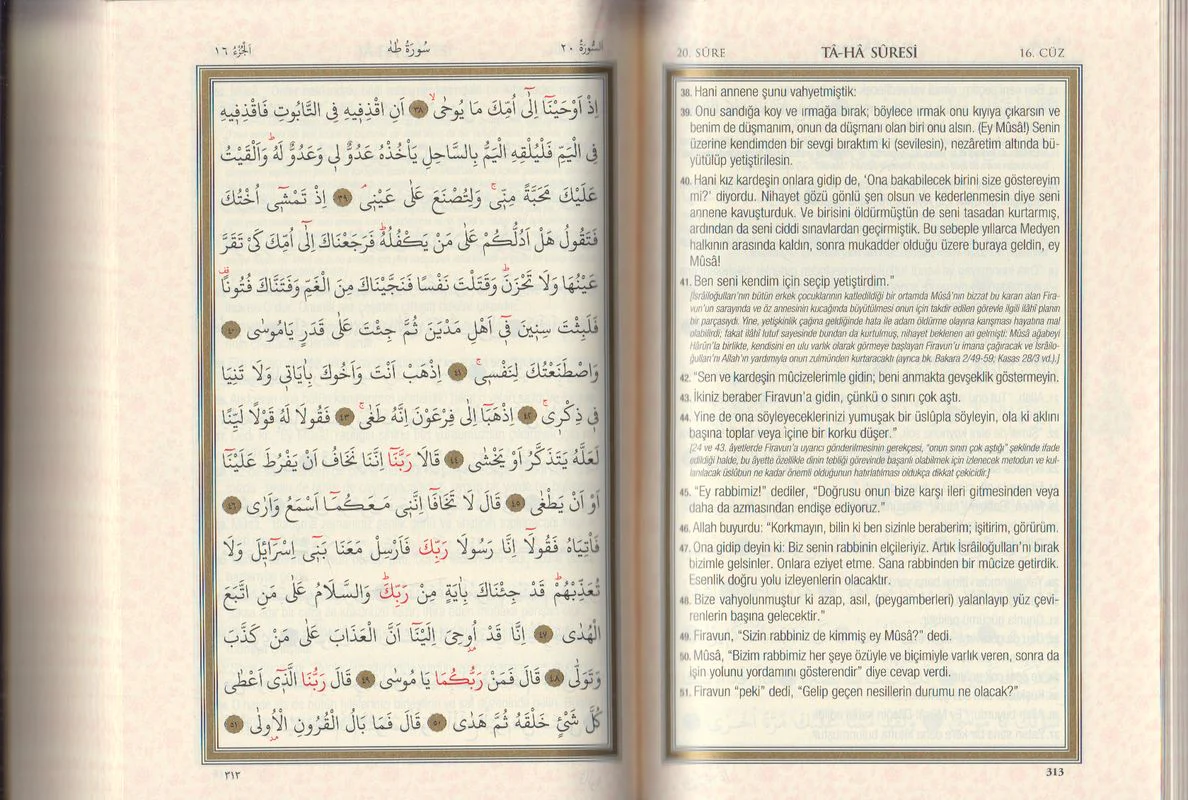 الجزء ١٦
سورة طه
السورة ٢٠
اِذْ اَوْحَيْنَٓا اِلٰٓى اُمِّكَ مَا يُوحٰىۙ ﴿٣٨﴾ اَنِ اقْذِف۪يهِ فِي التَّابُوتِ فَاقْذِف۪يهِ
فِي الْيَمِّ فَلْيُلْقِهِ الْيَمُّ بِالسَّاحِلِ يَأْخُذْهُ عَدُوٌّ ل۪ي وَعَدُوٌّ لَهُۜ وَاَلْقَيْتُ
عَلَيْكَ مَحَبَّةً مِنّ۪يۚ وَلِتُصْنَعَ عَلٰى عَيْن۪يۘ ﴿٣٩﴾ اِذْ تَمْش۪ٓي اُخْتُكَ
فَتَقُولُ هَلْ اَدُلُّكُمْ عَلٰى مَنْ يَكْفُلُهُۜ فَرَجَعْنَاكَ اِلٰٓى اُمِّكَ كَيْ تَقَرَّ
عَيْنُهَا وَلَا تَحْزَنَۜ وَقَتَلْتَ نَفْسًا فَنَجَّيْنَاكَ مِنَ الْغَمِّ وَفَتَنَّاكَ فُتُونًا۠
فَلَبِثْتَ سِن۪ينَ ف۪ٓي اَهْلِ مَدْيَنَ ثُمَّ جِئْتَ عَلٰى قَدَرٍ يَامُوسٰى ﴿٤٠﴾
وَاصْطَنَعْتُكَ لِنَفْس۪يۚ ﴿٤١﴾ اِذْهَبْ اَنْتَ وَاَخُوكَ بِاٰيَات۪ي وَلَا تَنِيَا
ف۪ي ذِكْر۪يۚ ﴿٤٢﴾ اِذْهَبَٓا اِلٰى فِرْعَوْنَ اِنَّهُ طَغٰىۚ ﴿٤٣﴾ فَقُولَا لَهُ قَوْلًا لَيِّنًا
لَعَلَّهُ يَتَذَكَّرُ اَوْ يَخْشٰى ﴿٤٤﴾ قَالَا رَبَّنَٓا اِنَّنَا نَخَافُ اَنْ يَفْرُطَ عَلَيْنَٓا
اَوْ اَنْ يَطْغٰى ﴿٤٥﴾ قَالَ لَا تَخَافَٓا اِنَّن۪ي مَعَكُمَٓا اَسْمَعُ وَاَرٰى ﴿٤٦﴾
فَأْتِيَاهُ فَقُولَٓا اِنَّا رَسُولَا رَبِّكَ فَاَرْسِلْ مَعَنَا بَن۪ٓي اِسْرَٓائ۪لَ وَلَا
تُعَذِّبْهُمْۜ قَدْ جِئْنَاكَ بِاٰيَةٍ مِنْ رَبِّكَۜ وَالسَّلَامُ عَلٰى مَنِ اتَّبَعَ
الْهُدٰى ﴿٤٧﴾ اِنَّا قَدْ اُو۫حِيَ اِلَيْنَٓا اَنَّ الْعَذَابَ عَلٰى مَنْ كَذَّبَ
وَتَوَلّٰى ﴿٤٨﴾ قَالَ فَمَنْ رَبُّكُمَا يَا مُوسٰى ﴿٤٩﴾ قَالَ رَبُّنَا الَّذ۪ٓي اَعْطٰى
كُلَّ شَيْءٍ خَلْقَهُ ثُمَّ هَدٰى ﴿٥٠﴾ قَالَ فَمَا بَالُ الْقُرُونِ الْاُو۫لٰى ﴿٥١﴾
٣١٢
20. SÛRE
TÂ-HÂ SÛRESİ
16. CÜZ
38. Hani annene şunu vahyetmiştik:
39. Onu sandığa koy ve ırmağa bırak; böylece ırmak onu kıyıya çıkarsın ve
benim de düşmanım, onun da düşmanı olan biri onu alsın. (Ey Mûsâ!) Senin
üzerine kendimden bir sevgi bıraktım ki (sevilesin), nezâretim altında bü-
yütülüp yetiştirilesin.
40. Hani kız kardeşin onlara gidip de, 'Ona bakabilecek birini size göstereyim
mi?' diyordu. Nihayet gözü gönlü şen olsun ve kederlenmesin diye seni
annene kavuşturduk. Ve birisini öldürmüştün de seni tasadan kurtarmış,
ardından da seni ciddi sınavlardan geçirmiştik. Bu sebeple yıllarca Medyen
halkının arasında kaldın, sonra mukadder olduğu üzere buraya geldin, ey
Mûsâ!
41. Ben seni kendim için seçip yetiştirdim."
[İsrâiloğulları'nın bütün erkek çocuklarının katledildiği bir ortamda Mûsâ'nın bizzat bu kararı alan Fira-
vun'un sarayında ve öz annesinin kucağında büyütülmesi onun için takdir edilen görevle ilgili ilâhî planın
bir parçasıydı. Yine, yetişkinlik çağına geldiğinde hata ile adam öldürme olayına karışması hayatına mal
olabilirdi; fakat ilâhî lutuf sayesinde bundan da kurtulmuş, nihayet beklenen an gelmişti: Mûsâ ağabeyi
Hârûn'la birlikte, kendisini en ulu varlık olarak görmeye başlayan Firavun'u imana çağıracak ve İsrâilo-
ğulları'nı Allah'ın yardımıyla onun zulmünden kurtaracaktı (ayrıca bk. Bakara 2/49-59; Kasas 28/3 vd.).]
42. "Sen ve kardeşin mûcizelerimle gidin; beni anmakta gevşeklik göstermeyin.
43. İkiniz beraber Firavun'a gidin, çünkü o sınırı çok aştı.
44. Yine de ona söyleyeceklerinizi yumuşak bir üslûpla söyleyin, ola ki aklını
başına toplar veya içine bir korku düşer."
[24 ve 43. âyetlerde Firavun'a uyarıcı gönderilmesinin gerekçesi, "onun sınırı çok aştığı" şeklinde ifade
edildiği halde, bu âyette özellikle dinin tebliği görevinde başarılı olabilmek için izlenecek metodun ve kul-
lanılacak üslûbun ne kadar önemli olduğunun hatırlatılması oldukça dikkat çekicidir.]
45. "Ey rabbimiz!" dediler, "Doğrusu onun bize karşı ileri gitmesinden veya
daha da azmasından endişe ediyoruz."
46. Allah buyurdu: "Korkmayın, bilin ki ben sizinle beraberim; işitirim, görürüm.
47. Ona gidip deyin ki: Biz senin rabbinin elçileriyiz. Artık İsrâiloğulları'nı bırak
bizimle gelsinler. Onlara eziyet etme. Sana rabbinden bir mûcize getirdik.
Esenlik doğru yolu izleyenlerin olacaktır.
48. Bize vahyolunmuştur ki azap, asıl, (peygamberleri) yalanlayıp yüz çevi-
renlerin başına gelecektir."
49. Firavun, "Sizin rabbiniz de kimmiş ey Mûsâ?" dedi.
50. Mûsâ, "Bizim rabbimiz her şeye özüyle ve biçimiyle varlık veren, sonra da
işin yolunu yordamını gösterendir" diye cevap verdi.
51. Firavun "peki" dedi, "Gelip geçen nesillerin durumu ne olacak?"
313